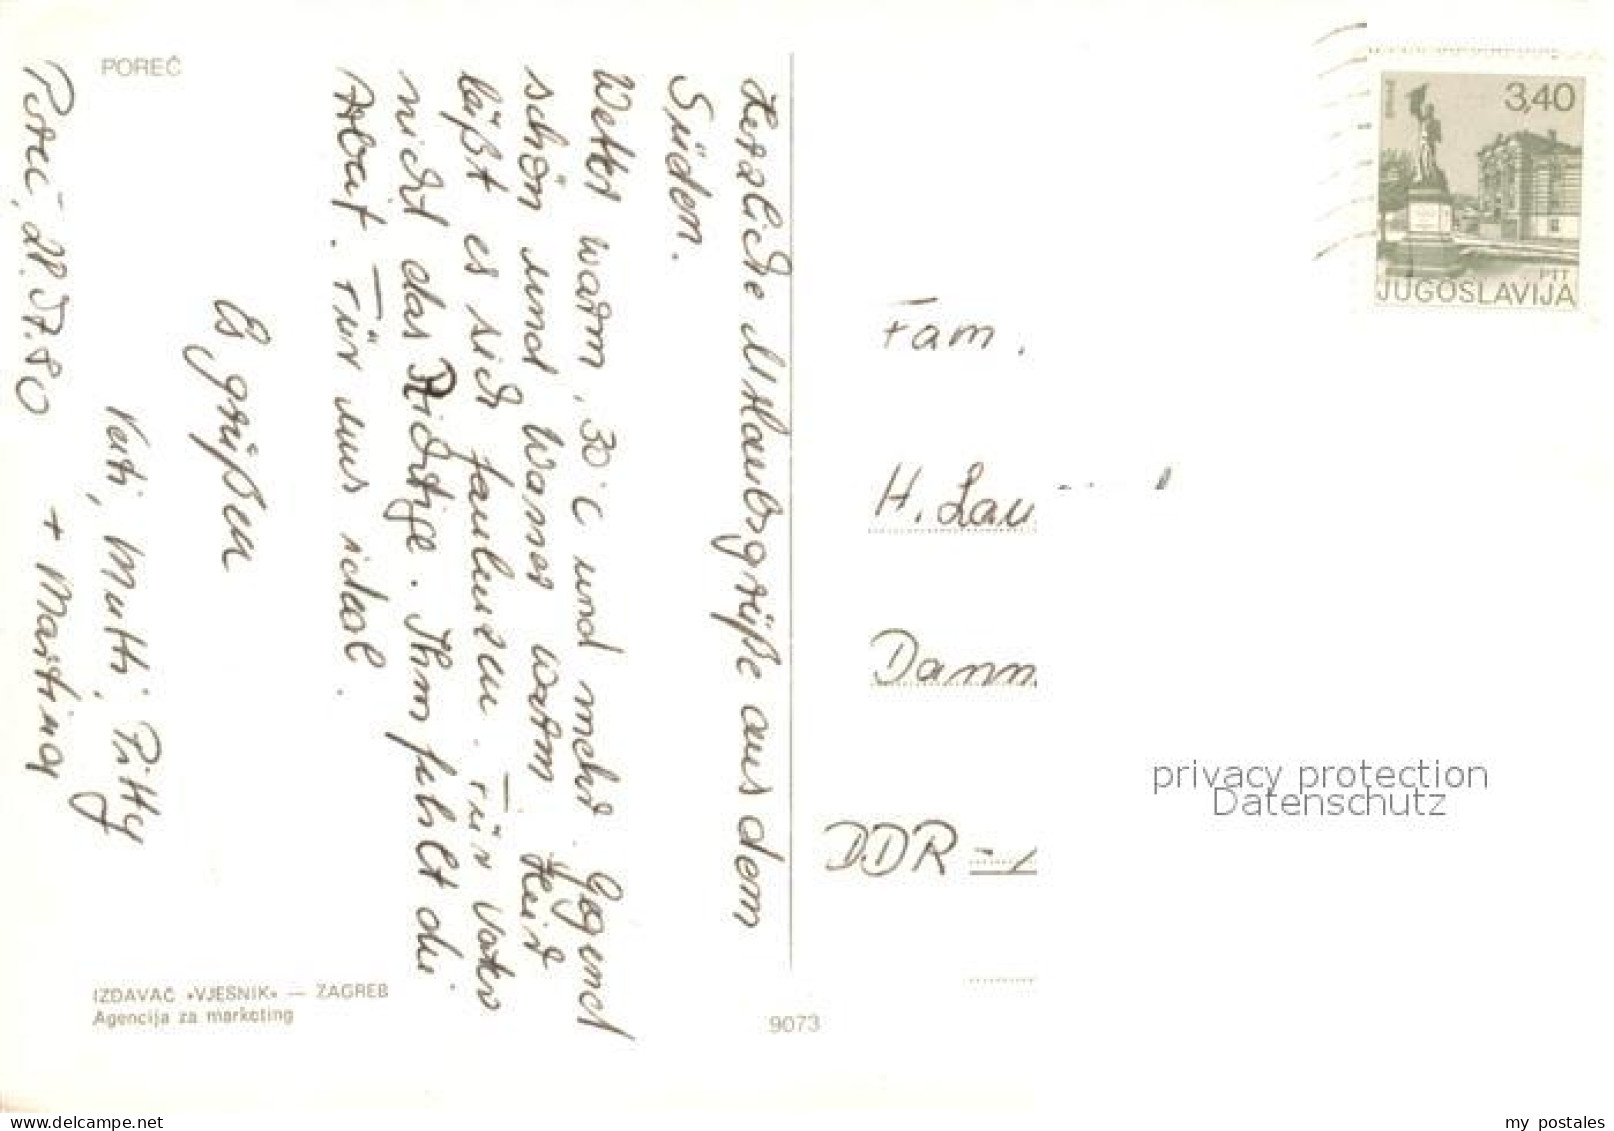 POREČ
Herzliche Urlaubsgrüße aus dem
Süden.
Wetter warm, 30°C und mehr. Gegend
schön und Wasser warm. Hier
läßt es sich faulenzen. Für Vater
nicht das Richtige. Ihm fehlt die
Arbeit. Für uns ideal.
Es grüßen
Vati, Mutti, Pitty
+ Martina
Poreč, 28.7.80
IZDAVAČ »VJESNIK« — ZAGREB
Agencija za marketing
9073
3,40
PTT
JUGOSLAVIJA
Fam.
H. Lau
Dann
DDR -
privacy protection
Datenschutz
delcampe.net
my postales